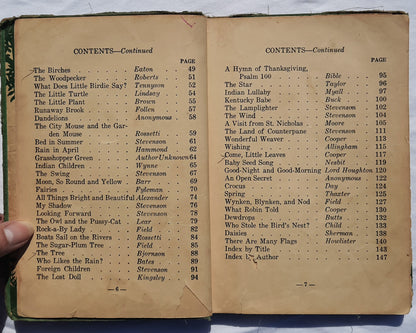 CONTENTS—Continued
PAGE
The Birches . . . . Eaton . . . 49
The Woodpecker . . . . Roberts . . . 51
What Does Little Birdie Say? . Tennyson . . . 52
The Little Turtle . . . . Lindsay . . . 54
The Little Plant . . . . Brown . . . 55
Runaway Brook . . . . Follen . . . 57
Dandelions . . . . Anonymous . . . 58
The City Mouse and the Gar-
den Mouse . . . . Rossetti . . . 59
Bed in Summer . . . . Stevenson . . . 61
Rain in April . . . . Hammond . . . 62
Grasshopper Green . . . . Author Unknown 64
Indian Children . . . . Wynne . . . 65
The Swing . . . . Stevenson . . . 67
Moon, So Round and Yellow . Barr . . . 69
Fairies . . . . Fyleman . . . 70
All Things Bright and Beautiful Alexander . . . 74
My Shadow . . . . Stevenson . . . 76
Looking Forward . . . . Stevenson . . . 78
The Owl and the Pussy-Cat . Lear . . . 79
Rock-a-By Lady . . . . Field . . . 82
Boats Sail on the Rivers . . Rossetti . . . 84
The Sugar-Plum Tree . . . Field . . . 85
The Tree . . . . Bjornson . . . 88
Who Likes the Rain? . . . Bates . . . 89
Foreign Children . . . . Stevenson . . . 91
The Lost Doll . . . . Kingsley . . . 94
— 6 —
CONTENTS—Continued
PAGE
A Hymn of Thanksgiving,
Psalm 100 . . . . Bible . . . 95
The Star . . . . Taylor . . . 96
Indian Lullaby . . . . Myall . . . 97
Kentucky Babe . . . . Buck . . . 100
The Lamplighter . . . . Stevenson . . . 102
The Wind . . . . Stevenson . . . 104
A Visit from St. Nicholas . . Moore . . . 105
The Land of Counterpane . . Stevenson . . . 111
Wonderful Weaver . . . . Cooper . . . 113
Wishing . . . . Allingham . . . 115
Come, Little Leaves . . . Cooper . . . 117
Baby Seed Song . . . . Nesbit . . . 119
Good-Night and Good-Morning Lord Houghton 120
An Open Secret . . . . Anonymous . . . 122
Crocus . . . . Day . . . 124
Spring . . . . Thaxter . . . 125
Wynken, Blynken, and Nod . Field . . . 127
What Robin Told . . . . Cooper . . . 130
Dewdrops . . . . Butts . . . 132
Who Stole the Bird's Nest? . Child . . . 133
Daisies . . . . Sherman . . . 138
There Are Many Flags . . . Howlister . . . 140
Index by Title . . . . 143
Index by Author . . . . 147
— 7 —